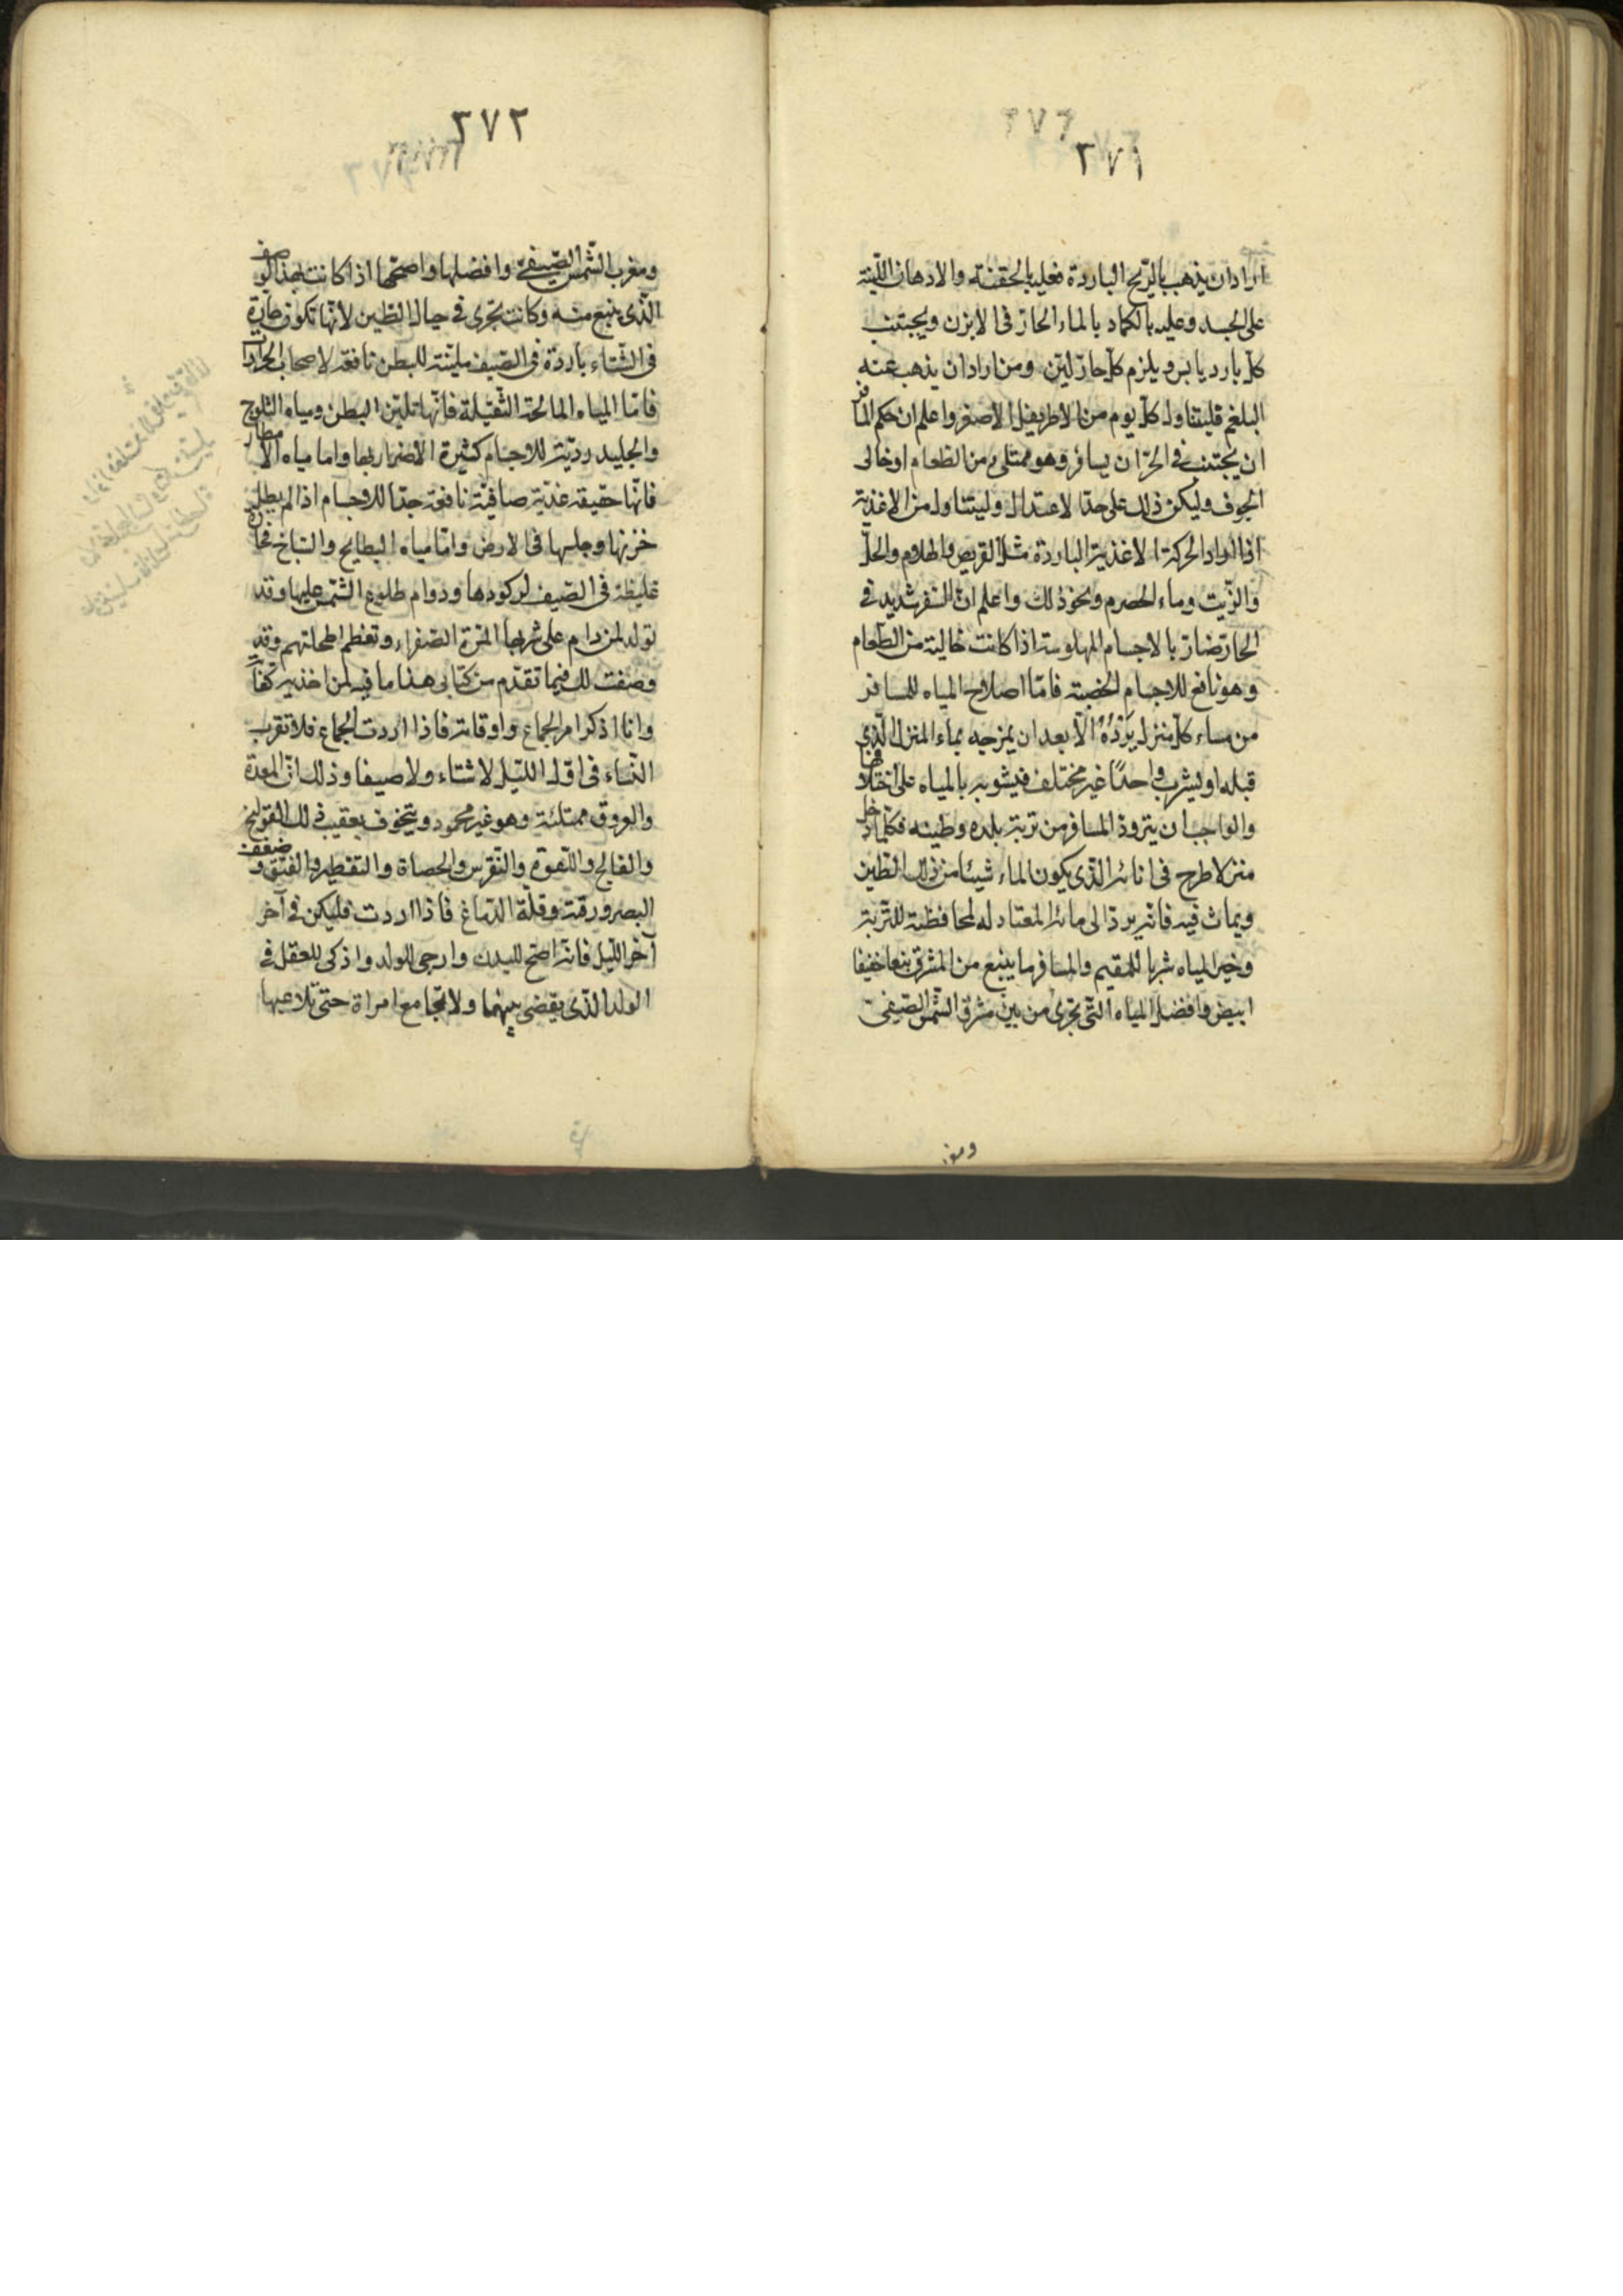 ٣٧١
اراد ان يذهب بالريح الباردة فعليه بالحقنة والادهان اللّينة
على الجسد وعليه بالكماد بالماء الحار فى الابزن ويجتنب
كلّ بارد يابس ويلزم كلّ حارّ ليّن ومن اراد ان يذهب عنه
البلغم فليتناول كلّ يوم من الاطريفل الاصفر واعلم ان حكم المسافر
ان يجتنب فى الحرّ ان يسافر وهو ممتلى من الطعام او خالى
الجوف وليكن ذلك على حدّ الاعتدال وليتناول من الاغذية
اذا اراد الحركة الاغذية الباردة مثل القريص والهلام والخلّ
والزّيت وماء الحصرم ونحو ذلك واعلم انّ السّفر شديد فى
الحارّ ضارّ بالاجسام المهلوسة اذا كانت خالية من الطّعام
وهو نافع للاجسام الخصبة فامّا اصلاح المياه للمسافر
من ماء كلّ منزل يَرِدُهُ الّا بعد ان يمزجه بماء المنزل الّذى
قبله او ليشرب واحدًا غير مختلف فيشوبه بالمياه على اختلافها
والواجب ان يتزوذ المسافر من تربة بلده وطينه فكلّما دخل
منزلا طرح فى انائه الّذى يكون الماء شيئا من ذلك الطّين
ويماث فيه فانّه يردّ الى مائه المعتاد له لمحافظته للتّربة
وخير المياه شربا للمقيم والمسافر ما ينبع من المشرق نبعا خفيفا
ابيض وافضل المياه الّتى تجرى من بين مشرق الشّمس الصّيفى
ومغرب
٣٧٢
ومغرب الشّمس الصّيفىّ وافضلها واصحّها اذا كانت بهذا الوصف
الّذى ينبع منه وكانت تجرى فى جبال الطّين لانّها تكون حارّة
فى الشّتاء باردة فى الصّيف مليّنة للبطن نافعة لاصحاب الحرارات
فامّا المياه المالحة الثّقيلة فانّها تليّن البطن ومياه الثلوج
والجليد رديّة للاجسام كثيرة الاضرار بها واما مياه الامطار
فانّها حقيقه عذبة صافية نافعة جدّا للاجسام اذا لم يطل
خزنها وحبسها فى الارض وامّا مياه البطايح والسّباخ فحارّة
غليظة فى الصّيف لركودها ودوام طلوع الشّمس عليها وقد
تولد لمن دام على شربها المرّة الصّفراء وتعظم اطحلتهم وقد
وصفت لك فيما تقدّم من كتابى هذا ما فيه لمن اخذ به كفاية
وانا اذكر امر الجماع واوقاته فاذا اردت الجماع فلا تقرب
النّساء فى اوّل اللّيل لا شتاء ولا صيفا وذلك انّ المعدة
والعروق ممتلئة وهو غير محمود ويتخوف بعقيب ذلك القولنج
والفالج واللّقوة والنّقرس والحصاة والتقطير والفتق وضعف
البصر ورقّته وقلّة الدّماغ فاذا اردت فليكن فى آخر
آخر اللّيل فانّه اصحّ للبدن وارجى للولد واذكى للعقل فى
الولد الّذى يقضى بينهما ولا تجامع امراة حتّى تلاعبها